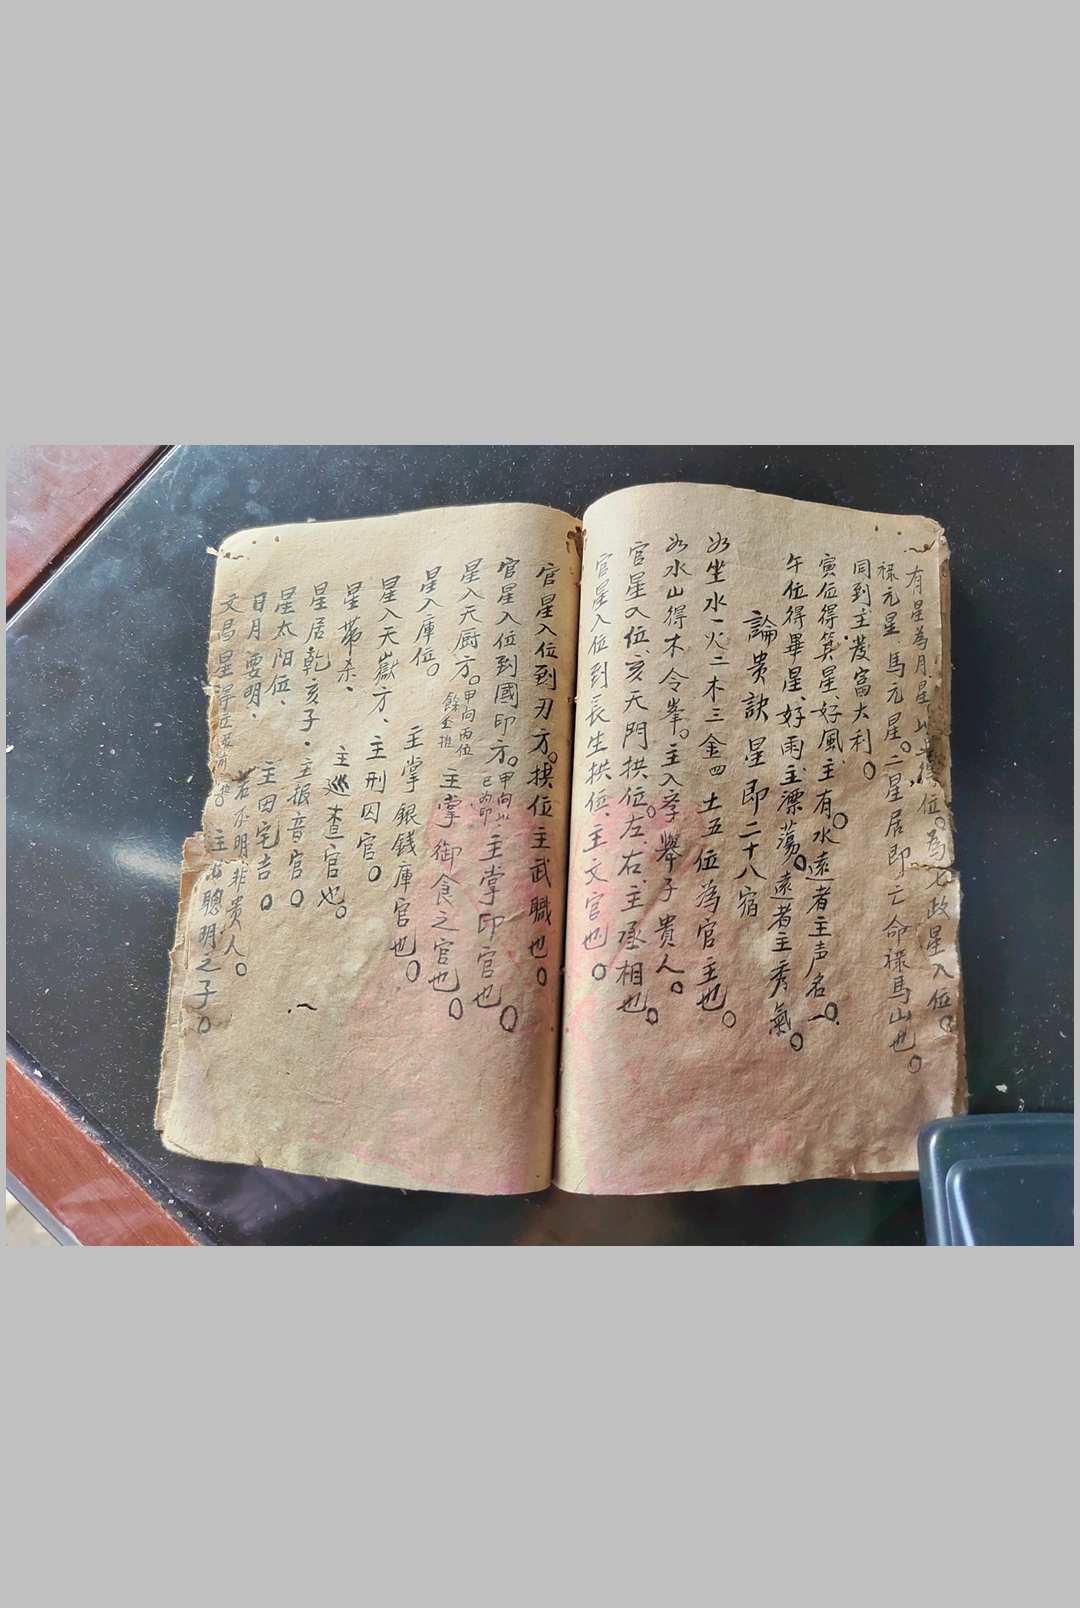 有星為月星山主得位。為七政星入位。
祿元星馬元星。二星居即亡命祿馬山也。
同到主發富大利。
寅位得箕星、好風主有。水遠者主声名。
午位得畢星、好雨主漂蕩。遠者主秀氣。
論贵訣 星即二十八宿
如坐水一火二木三金四土五位為官主也。
如水山得木令峯。主入孝舉子貴人。
官星入位亥天門拱位。左右主丞相也。
官星入位到長生拱位、主文官也。
官星入位到刃方。拱位主武職也。
官星入位到國印方。甲向 主掌印官也。
星入天厨方。甲向丙位餘全推 主掌御食之官也。
星入庫位。 主掌銀錢庫官也。
星入天嶽方、主刑囚官。
星帶杀、 主巡查官也。
星居乾亥子、主振音官。
星太阳位、 主田宅吉。
日月要明、 若不明非贵人。
文昌星得 主 聰明之子。